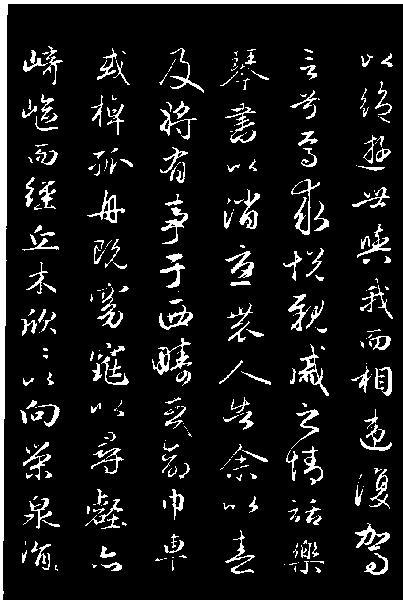 以絕遊世與我而相違復駕
言兮焉求悅親戚之情話樂
琴書以消憂農人告余以春
及將有事于西疇或命巾車
或棹孤舟既窈窕以尋壑亦
崎嶇而經丘木欣〻以向榮泉涓〻